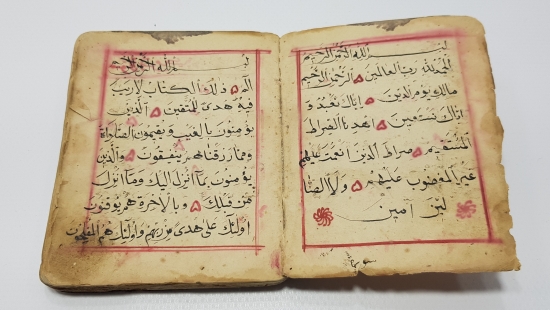 بسم الله الرحمن الرحيم
الحمد لله رب العالمين ه الرحمن الرحيم
مالك يوم الدين ه اياك نعبد و
اياك نستعين ه اهدنا الصراط
المستقيم ه صراط الذين انعمت عليهم
غير المغضوب عليهم ه ولا الضا
لين امين
بسم الله الرحمن الرحيم
الم ه ذلك الكتاب لا ريب
فيه هدى للمتقين ه الذين
يؤمنون بالغيب ويقيمون الصلواة
ومما رزقناهم ينفقون ه والذين
يؤمنون بما انزل اليك وما انزل
من قبلك ه وبالاخرة هم يوقنون
اولئك على هدى من ربهم واولئك هم المفلحون